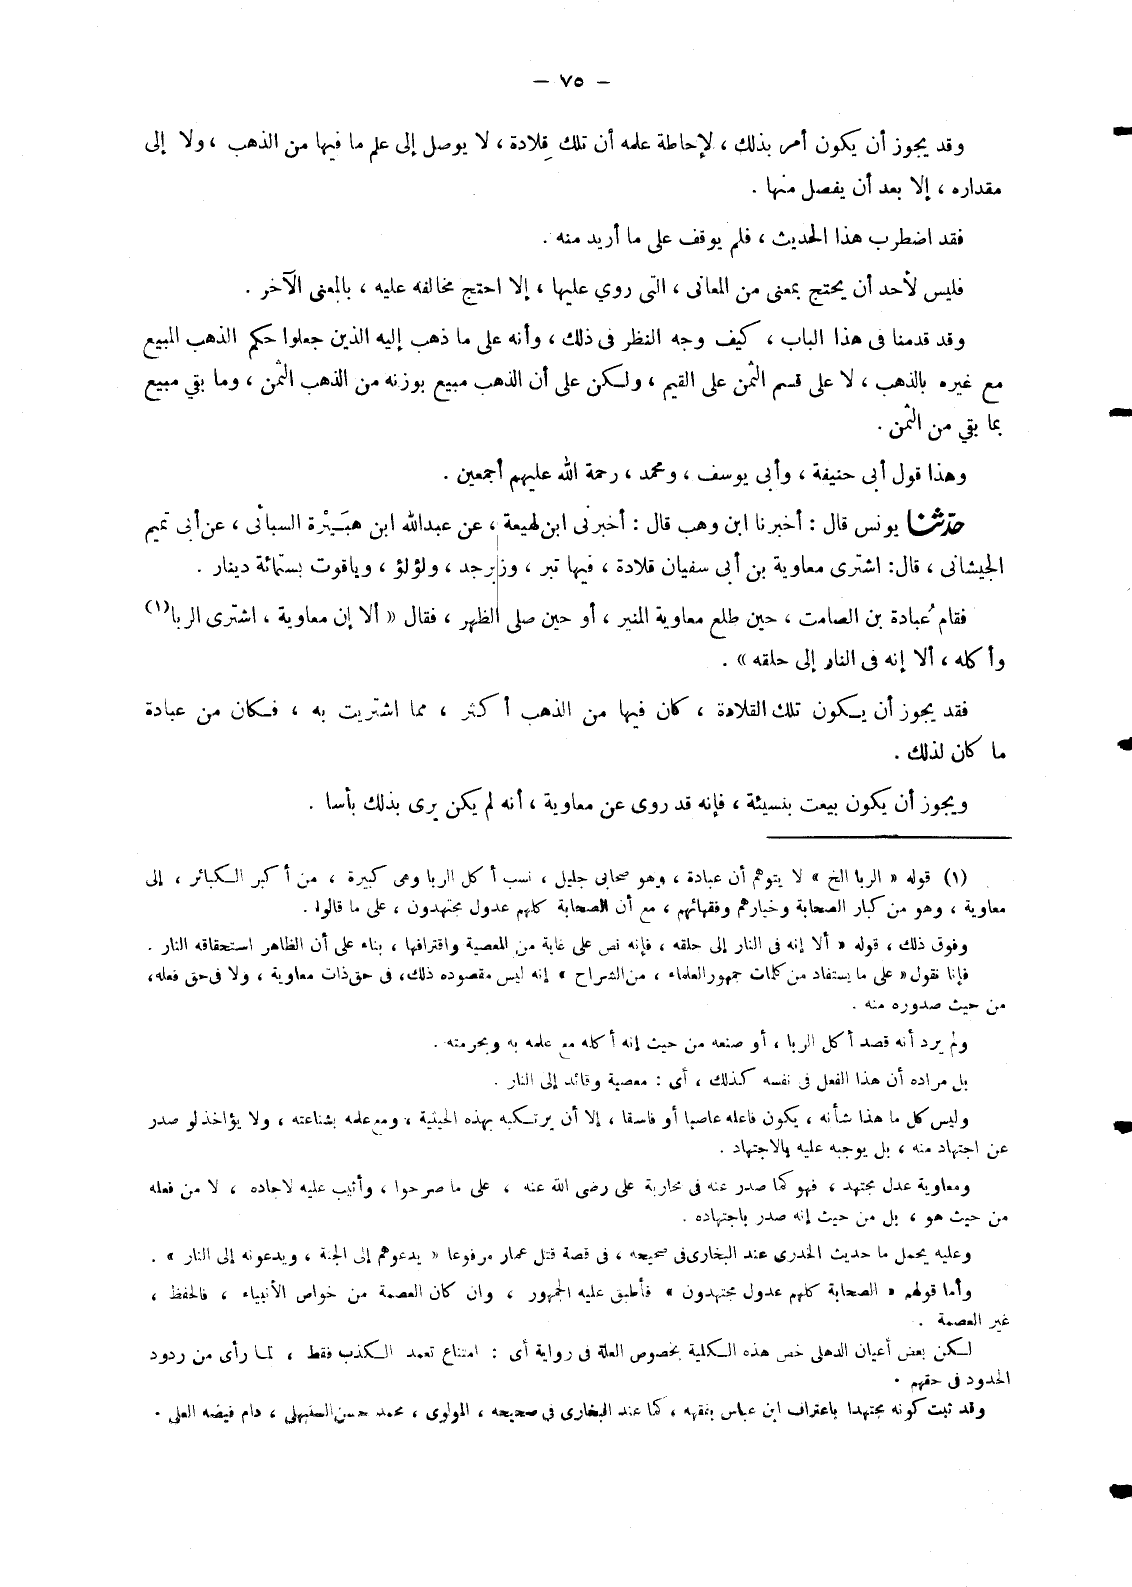 — ٧٥ —
وقد يجوز أن يكون أمر بذلك ، لإحاطة علمه أن تلك قِلادة ، لا يوصل إلى علم ما فيها من الذهب ، ولا إلى
مقداره ، إلا بعد أن يفصل منها .
فقد اضطرب هذا الحديث ، فلم يوقف على ما أريد منه .
فليس لأحد أن يحتج بمعنى من المعانى ، التى روي عليها ، إلا احتج مخالفه عليه ، بالمعنى الآخر .
وقد قدمنا فى هذا الباب ، كيف وجه النظر فى ذلك ، وأنه على ما ذهب إليه الذين جعلوا حكم الذهب المبيع
مع غيره بالذهب ، لا على قسم الثمن على القيم ، ولكن على أن الذهب مبيع بوزنه من الذهب الثمن ، وما بقي مبيع
بما بقي من الثمن .
وهذا قول أبى حنيفة ، وأبى يوسف ، ومحمد ، رحمة الله عليهم أجمعين .
حدّثنا يونس قال : أخبرنا ابن وهب قال : أخبرنى ابن لهيعة ، عن عبدالله ابن هبَيْرة السبائى ، عن أبى تميم
الجيشانى ، قال: اشترى معاوية بن أبى سفيان قلادة ، فيها تبر ، وزبرجد ، ولؤلؤ ، وياقوت بستمائة دينار .
فقام عُبادة بن الصامت ، حين طلع معاوية المنبر ، أو حين صلى الظهر ، فقال « ألا إن معاوية ، اشترى الربا(١)
وأكله ، ألا إنه فى النار إلى حلقه » .
فقد يجوز أن يكون تلك القلادة ، كان فيها من الذهب أكثر ، مما اشتريت به ، فكان من عبادة
ما كان لذلك .
ويجوز أن يكون بيعت بنسيئة ، فإنه قد روى عن معاوية ، أنه لم يكن يرى بذلك بأسا .
(١) قوله « الربا الخ » لا يتوهم أن عبادة ، وهو صحابى جليل ، نسب أكل الربا وهى كبيرة ، من أكبر الكبائر ، إلى
معاوية ، وهو من كبار الصحابة وخيارهم وفقهائهم ، مع أن الصحابة كلهم عدول مجتهدون ، على ما قالوا .
وفوق ذلك ، قوله « ألا إنه فى النار إلى حلقه ، فإنه نص على غاية من المعصية واقترافها ، بناء على أن الظاهر استحقاقه النار .
فإنا نقول « على ما يستفاد من كلمات جمهور العلماء ، من الشراح » إنه ليس مقصوده ذلك، فى حق ذات معاوية ، ولا فى حق فعله،
من حيث صدوره منه .
ولم يرد أنه قصد أكل الربا ، أو صنعه من حيث إنه أكله مع علمه به وبحرمته .
بل مراده أن هذا الفعل فى نفسه كذلك ، أى : معصية وقائد إلى النار .
وليس كل ما هذا شأنه ، يكون فاعله عاصيا أو فاسقا ، إلا أن يرتكبه بهذه الحيثية ، ومع علمه بشناعته ، ولا يؤاخذ لو صدر
عن اجتهاد منه ، بل يوجبه عليه بالاجتهاد .
ومعاوية عدل مجتهد ، فهو كما صدر عنه فى محاربة على رضى الله عنه ، على ما صرحوا ، وأثيب عليه لاجاده ، لا من فعله
من حيث هو ، بل من حيث إنه صدر باجتهاده .
وعليه يحمل ما حديث الخدرى عند البخارى فى صحيحه ، فى قصة قتل عمار مرفوعا « يدعوهم إلى الجنة ، ويدعونه إلى النار » .
وأما قولهم « الصحابة كلهم عدول مجتهدون » فأطبق عليه الجمهور ، وان كان العصمة من خواص الأنبياء ، فالحفظ ،
غير العصمة .
لكن بعض أعيان الدهلى خص هذه الكلية بخصوص العلة فى رواية أى : امتناع تعمد الكذب فقط ، لما رأى من ردود
الحدود فى حقهم .
وقد ثبت كونه مجتهدا باعتراف ابن عباس بتفقهه ، كما عند البخارى فى صحيحه ، المولوى ، محمد حسن السنبهلى ، دام فيضه العلى .